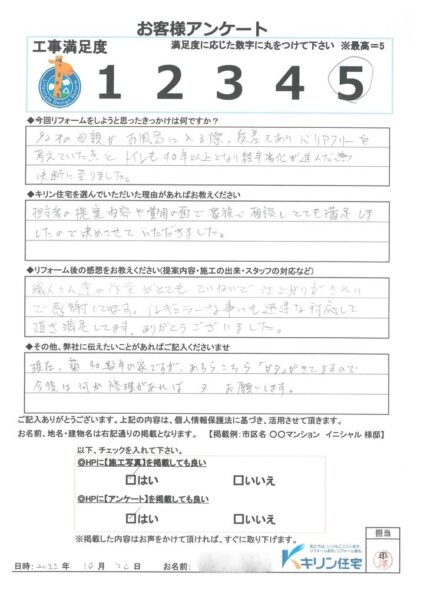 お客様アンケート
工事満足度
満足度に応じた数字に丸をつけて下さい ※最高=5
1 2 3 4 5
◆今回リフォームをしようと思ったきっかけは何ですか?
92才の母親がお風呂に入る際、段差もありバリアフリーを
考えていた点とトイレも40年以上となり経年劣化が進んだ為
決断に至りました。
◆キリン住宅を選んでいただいた理由があればお教えください
担当者の提案内容や費用の面で家族と相談しとても満足しま
したので決めさせていただきました。
◆リフォーム後の感想をお教えください(提案内容・施工の出来・スタッフの対応など)
職人さん達の作業がとてもていねいで仕上がりがきれい
で感謝してます。イレギュラーな事にも迅速な対応して
頂き満足してます。ありがとうございました。
◆その他、弊社に伝えたいことがあればご記入くださいませ
現在、築40数年の家ですが、あちらこちら「ガタ」がきてますので
今後は何か修理があれば又お願いします。
ご記入ありがとうございます。上記の内容は、個人情報保護法に基づき、活用させて頂きます。
お名前、地名・建物名は右記通りの掲載となります。 【掲載例:市区名 〇〇マンション イニシャル 様邸】
以下、チェックを入れて下さい。
◎HPに【施工写真】を掲載しても良い
はい いいえ
◎HPに【アンケート】を掲載しても良い
はい いいえ
※掲載した内容はお声をかけて頂ければ、すぐに取り下げます。
担当
キリン住宅
日時: 2022 年 10 月 日 お名前: